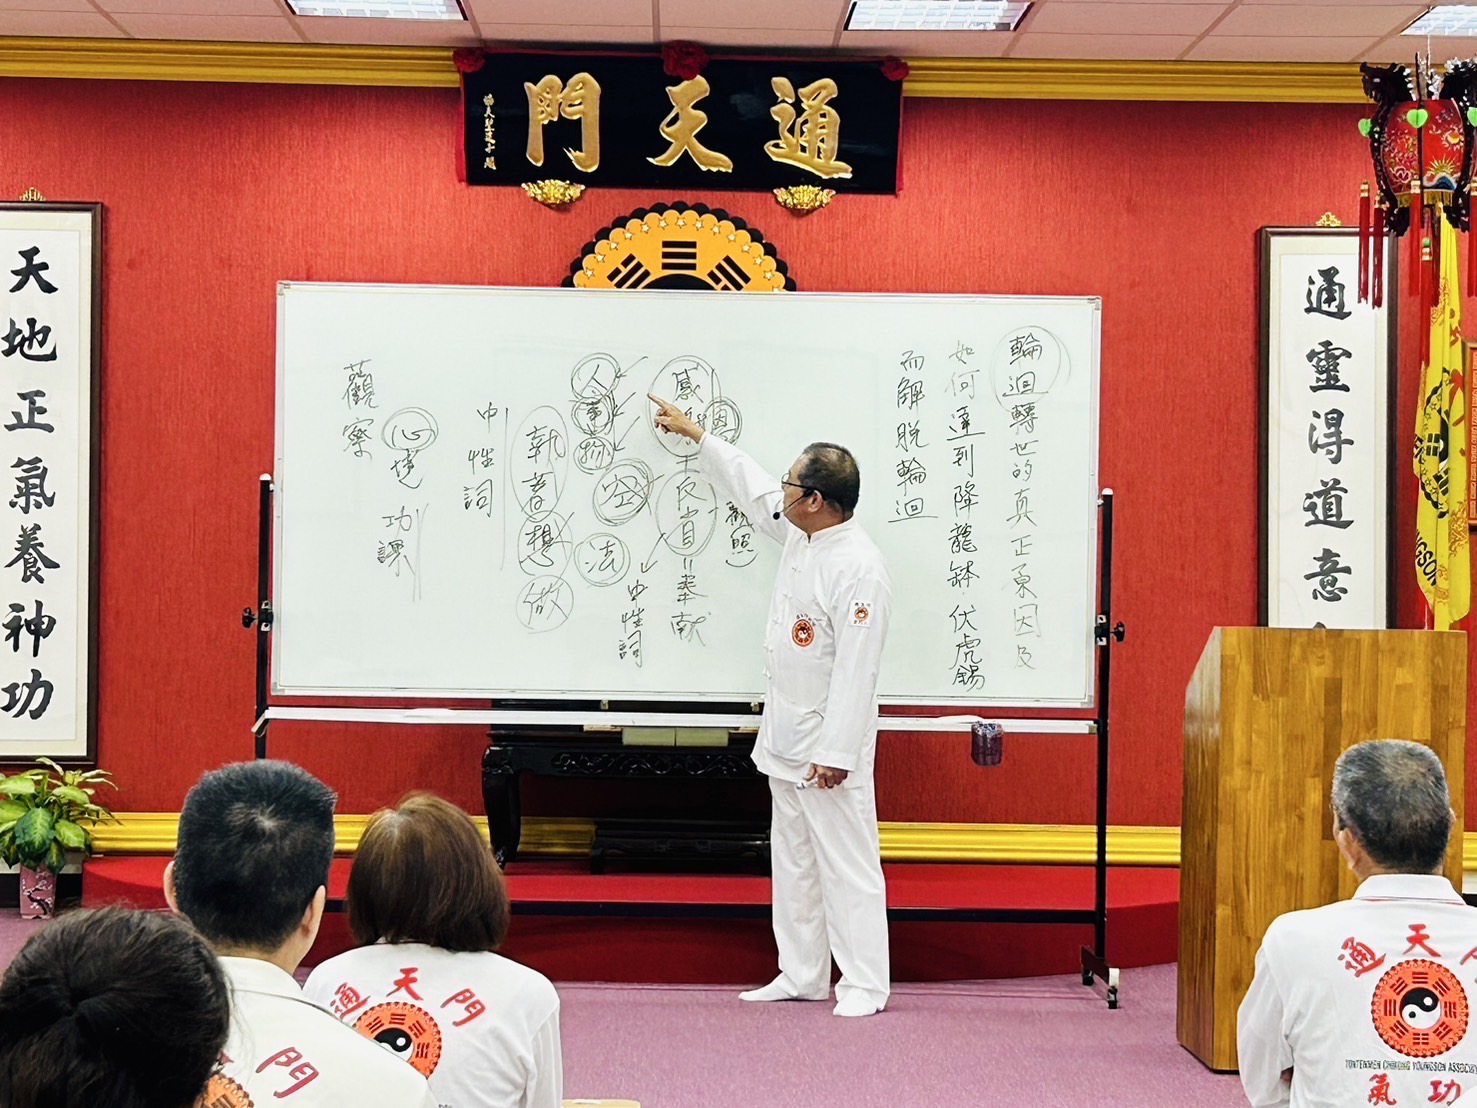 通天門
通靈得道意
天地正氣養神功
輪迴轉世的真正原因及
如何達到降龍鉢伏虎錫
而解脫輪迴
觀照
因
感
反省=奉献
中性詞
人
事
物
空
法
執著想
做
中性詞
心境功課
觀察
通天門
門
通天門
TONTENMEN CHIKONG YOUNGSON
氣功